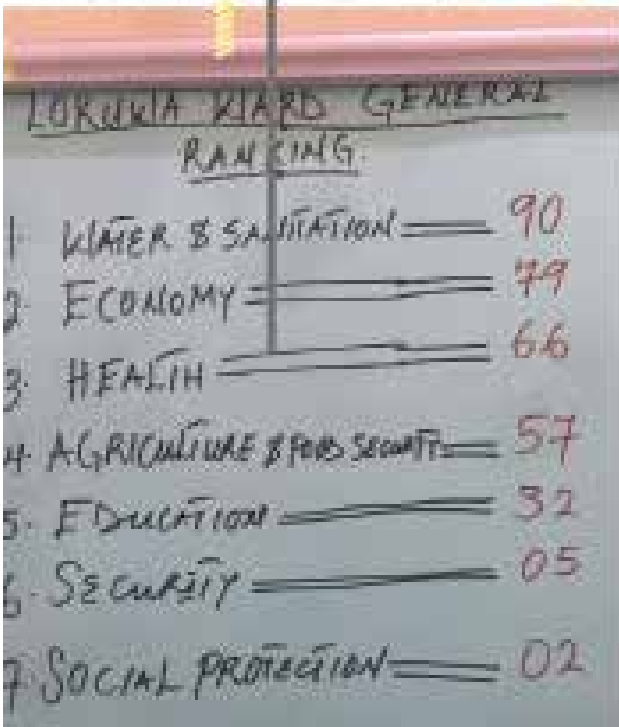 LOKUWA WARD GENERAL
RANKING.
1. WATER & SANITATION == 90
2. ECONOMY == 79
3. HEALTH == 66
4. AGRICULTURE & FOOD SECURITY == 57
5. EDUCATION == 32
6. SECURITY == 05
7 SOCIAL PROTECTION == 02